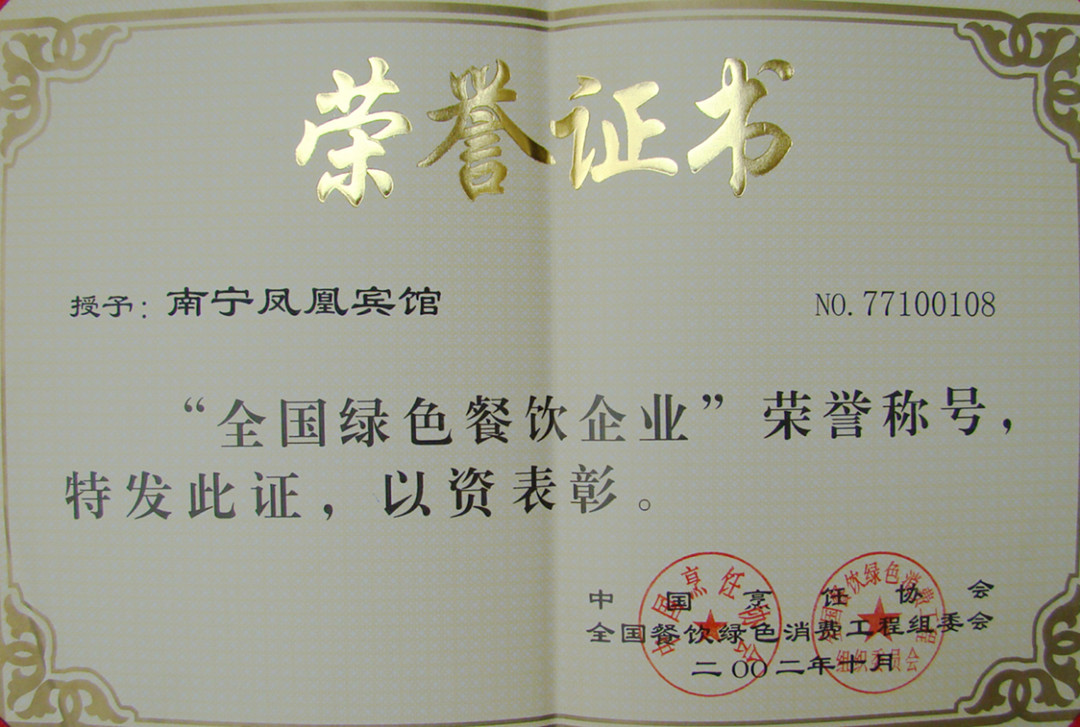 荣誉证书
授予：南宁凤凰宾馆
NO.77100108
“全国绿色餐饮企业”荣誉称号，
特发此证，以资表彰。
中国烹饪协会
全国餐饮绿色消费工程组委会
二〇〇二年十月
中国烹饪协会
全国餐饮绿色消费工程
组织委员会